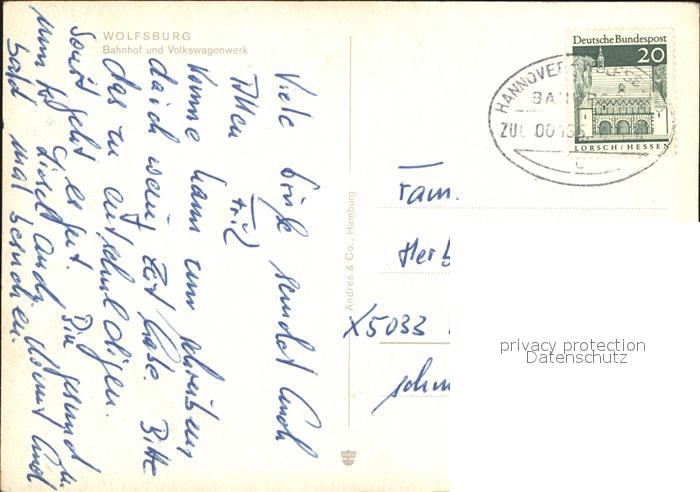 WOLFSBURG
Bahnhof und Volkswagenwerk
Viele Grüße sendet Euch
Fritz
Komme kaum zum schreiben
da ich wenig Zeit habe. Bitte
das zu entschuldigen.
Sonst geht es gut. Bin gesund u.
bald mal besuchen.
Andres & Co., Hamburg
Deutsche Bundespost
20
LORSCH/HESSEN
HANNOVER
ZUG 00135
c
Fam.
Herb
X5033
schm
privacy protection
Datenschutz